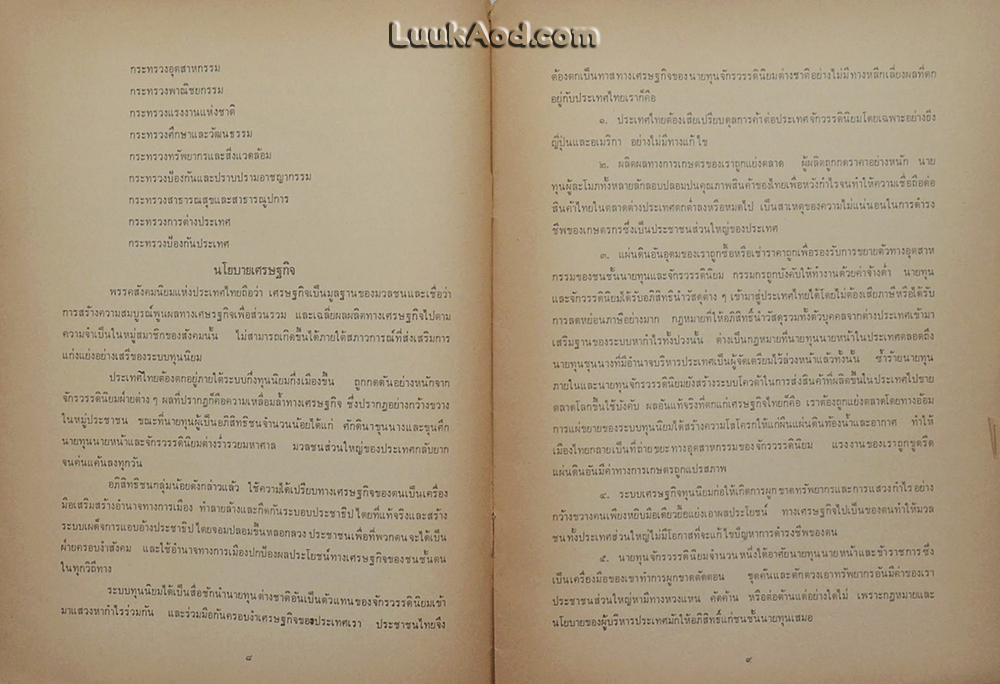 LuukAod.com
กระทรวงอุตสาหกรรม
กระทรวงพาณิชยกรรม
กระทรวงแรงงานแห่งชาติ
กระทรวงศึกษาและวัฒนธรรม
กระทรวงทรัพยากรและสิ่งแวดล้อม
กระทรวงป้องกันและปราบปรามอาชญากรรม
กระทรวงสาธารณสุขและสาธารณูปการ
กระทรวงการต่างประเทศ
กระทรวงป้องกันประเทศ
นโยบายเศรษฐกิจ
พรรคสังคมนิยมแห่งประเทศไทยถือว่า เศรษฐกิจเป็นมูลฐานของมวลชนและเชื่อว่า
การสร้างความสมบูรณ์พูนผลทางเศรษฐกิจเพื่อส่วนรวม และเฉลี่ยผลผลิตทางเศรษฐกิจไปตาม
ความจำเป็นในหมู่สมาชิกของสังคมนั้น ไม่สามารถเกิดขึ้นได้ภายใต้สภาวการณ์ที่ส่งเสริมการ
แก่งแย่งอย่างเสรีของระบบทุนนิยม
ประเทศไทยต้องตกอยู่ภายใต้ระบบกึ่งทุนนิยมกึ่งเมืองขึ้น ถูกกดดันอย่างหนักจาก
จักรวรรดินิยมฝ่ายต่าง ๆ ผลที่ปรากฏก็คือความเหลื่อมล้ำทางเศรษฐกิจ ซึ่งปรากฏอย่างกว้างขวาง
ในหมู่ประชาชน ขณะที่นายทุนผู้เป็นอภิสิทธิชนจำนวนน้อยได้แก่ ศักดินาขุนนางและขุนศึก
นายทุนนายหน้าและจักรวรรดินิยมต่างร่ำรวยมหาศาล มวลชนส่วนใหญ่ของประเทศกลับยาก
จนค่นแค้นลงทุกวัน
อภิสิทธิชนกลุ่มน้อยดังกล่าวแล้ว ใช้ความได้เปรียบทางเศรษฐกิจของตนเป็นเครื่อง
มือเสริมสร้างอำนาจทางการเมือง ทำลายล้างและกีดกันระบอบประชาธิปไตยที่แท้จริงและสร้าง
ระบบเผด็จการแอบอ้างประชาธิปไตยจอมปลอมขึ้นหลอกลวงประชาชนเพื่อที่พวกตนจะได้เป็น
ฝ่ายครอบงำสังคม และใช้อำนาจทางการเมืองปกป้องผลประโยชน์ทางเศรษฐกิจของชนชั้นตน
ในทุกวิถีทาง
ระบบทุนนิยมได้เป็นสื่อชักนำนายทุนต่างชาติอันเป็นตัวแทนของจักรวรรดินิยมเข้า
มาแสวงหากำไรร่วมกัน และร่วมมือกันครอบงำเศรษฐกิจของประเทศเรา ประชาชนไทยจึง
๘
ต้องตกเป็นทาสทางเศรษฐกิจของนายทุนจักรวรรดินิยมต่างชาติอย่างไม่มีทางหลีกเลี่ยงผลที่ตก
อยู่กับประเทศไทยเราก็คือ
๑. ประเทศไทยต้องเสียเปรียบดุลการค้าต่อประเทศจักรวรรดินิยมโดยเฉพาะอย่างยิ่ง
ญี่ปุ่นและอเมริกา อย่างไม่มีทางแก้ไข
๒. ผลิตผลทางการเกษตรของเราถูกแย่งตลาด ผู้ผลิตถูกกดราคาอย่างหนัก นาย
ทุนผู้ละโมภทั้งหลายลักลอบปลอมปนคุณภาพสินค้าของไทยเพื่อหวังกำไรจนทำให้ความเชื่อถือต่อ
สินค้าไทยในตลาดต่างประเทศตกต่ำลงหรือหมดไป เป็นสาเหตุของความไม่แน่นอนในการดำรง
ชีพของเกษตรกรซึ่งเป็นประชาชนส่วนใหญ่ของประเทศ
๓. แผ่นดินอันอุดมของเราถูกซื้อหรือเช่าราคาถูกเพื่อรองรับการขยายตัวทางอุตสาห
กรรมของชนชั้นนายทุนและจักรวรรดินิยม กรรมกรถูกบังคับให้ทำงานด้วยค่าจ้างต่ำ นายทุน
และจักรวรรดินิยมได้รับอภิสิทธิ์นำวัสดุต่าง ๆ เข้ามาสู่ประเทศไทยได้โดยไม่ต้องเสียภาษีหรือได้รับ
การลดหย่อนภาษีอย่างมาก กฎหมายที่ให้อภิสิทธิ์นำวัสดุรวมทั้งตัวบุคคลจากต่างประเทศเข้ามา
เสริมฐานของระบบหากำไรทั้งปวงนั้น ต่างเป็นกฎหมายที่นายทุนนายหน้าในประเทศตลอดถึง
นายทุนขุนนางที่มีอำนาจบริหารประเทศเป็นผู้จัดเตรียมไว้ล่วงหน้าแล้วทั้งนั้น ซ้ำร้ายนายทุน
ภายในและนายทุนจักรวรรดินิยมยังสร้างระบบโควต้าในการส่งสินค้าที่ผลิตขึ้นในประเทศไปขาย
ตลาดโลกขึ้นใช้บังคับ ผลอันแท้จริงที่ตกแก่เศรษฐกิจไทยก็คือ เราต้องถูกแย่งตลาดโดยทางอ้อม
การแผ่ขยายของระบบทุนนิยมได้สร้างความโสโครกให้แก่ผืนแผ่นดินท้องน้ำและอากาศ ทำให้
เมืองไทยกลายเป็นที่ถ่ายขยะทางอุตสาหกรรมของจักรวรรดินิยม แรงงานของเราถูกขูดรีด
แผ่นดินอันมีค่าทางการเกษตรถูกแปรสภาพ
๔. ระบบเศรษฐกิจทุนนิยมก่อให้เกิดการผูกขาดทรัพยากรและการแสวงกำไรอย่าง
กว้างขวางคนเพียงหยิบมือเดียวยื้อแย่งเอาผลประโยชน์ ทางเศรษฐกิจไปเป็นของตนทำให้มวล
ชนทั้งประเทศส่วนใหญ่ไม่มีโอกาสที่จะแก้ไขปัญหาการดำรงชีพของตน
๕. นายทุนนิยมจำนวนหนึ่งได้อาศัยนายทุนนายหน้าและข้าราชการซึ่ง
เป็นเครื่องมือของเขาทำการผูกขาดตัดตอน ขุดค้นและตักตวงเอาทรัพยากรอันมีค่าของเรา
ประชาชนส่วนใหญ่หามีทางหวงแหน คัดค้าน หรือต่อต้านแต่อย่างใดไม่ เพราะกฎหมายและ
นโยบายของผู้บริหารประเทศมักให้อภิสิทธิ์แก่ชนชั้นนายทุนเสมอ
๙